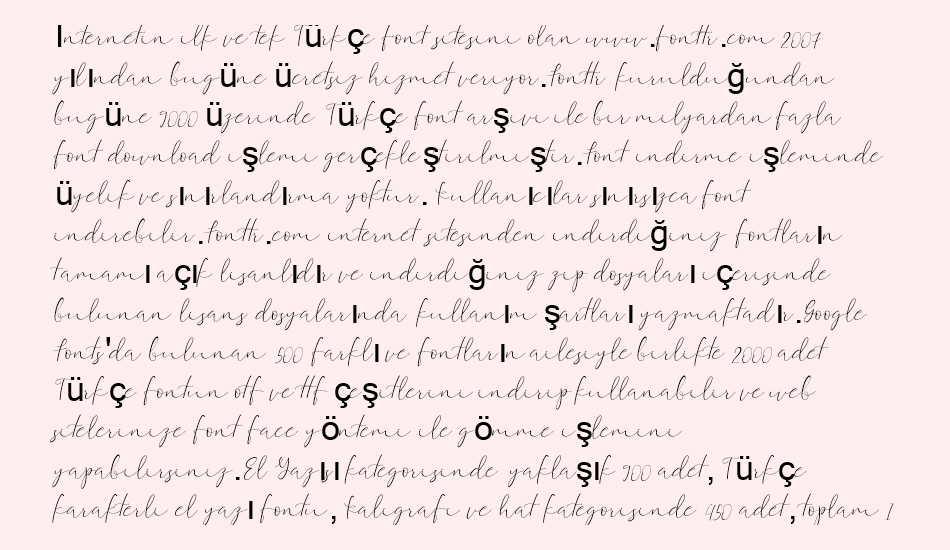 İnternetin ilk ve tek Türkçe font sitesini olan www.fonttr.com 2007
yılından bugüne ücretsiz hizmet veriyor.fonttr kurulduğundan
bugüne 9000 üzerinde Türkçe font arşivi ile bir milyardan fazla
font download işlemi gerçekleştirilmiştir.font indirme işleminde
üyelik ve sınırlandırma yoktur. Kullanıcılar sınırsızca font
indirebilir.fonttr.com internet sitesinden indirdiğiniz fontların
tamamı açık lisanlıdır ve indirdiğiniz zip dosyaları içerisinde
bulunan lisans dosyalarında kullanım şartları yazmaktadır.Google
fonts'da bulunan 500 farklı ve fontların ailesiyle birlikte 2000 adet
Türkçe fontun otf ve ttf çeşitlerini indirip kullanabilir ve web
sitelerinize font face yöntemi ile gömme işlemini
yapabilirsiniz.El Yazısı kategorisinde yaklaşık 900 adet, Türkçe
karakterli el yazı fontu, kaligrafi ve hat kategorisinde 450 adet,toplam 1